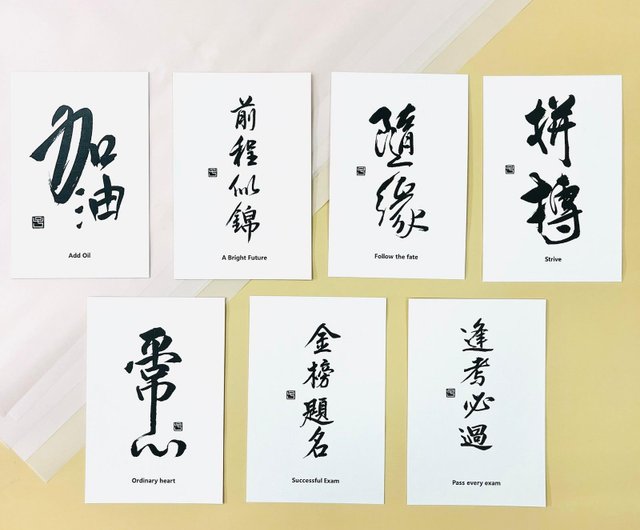 加油
Add Oil
前程似錦
A Bright Future
隨緣
Follow the fate
拼搏
Strive
平常心
Ordinary heart
金榜題名
Successful Exam
逢考必過
Pass every exam